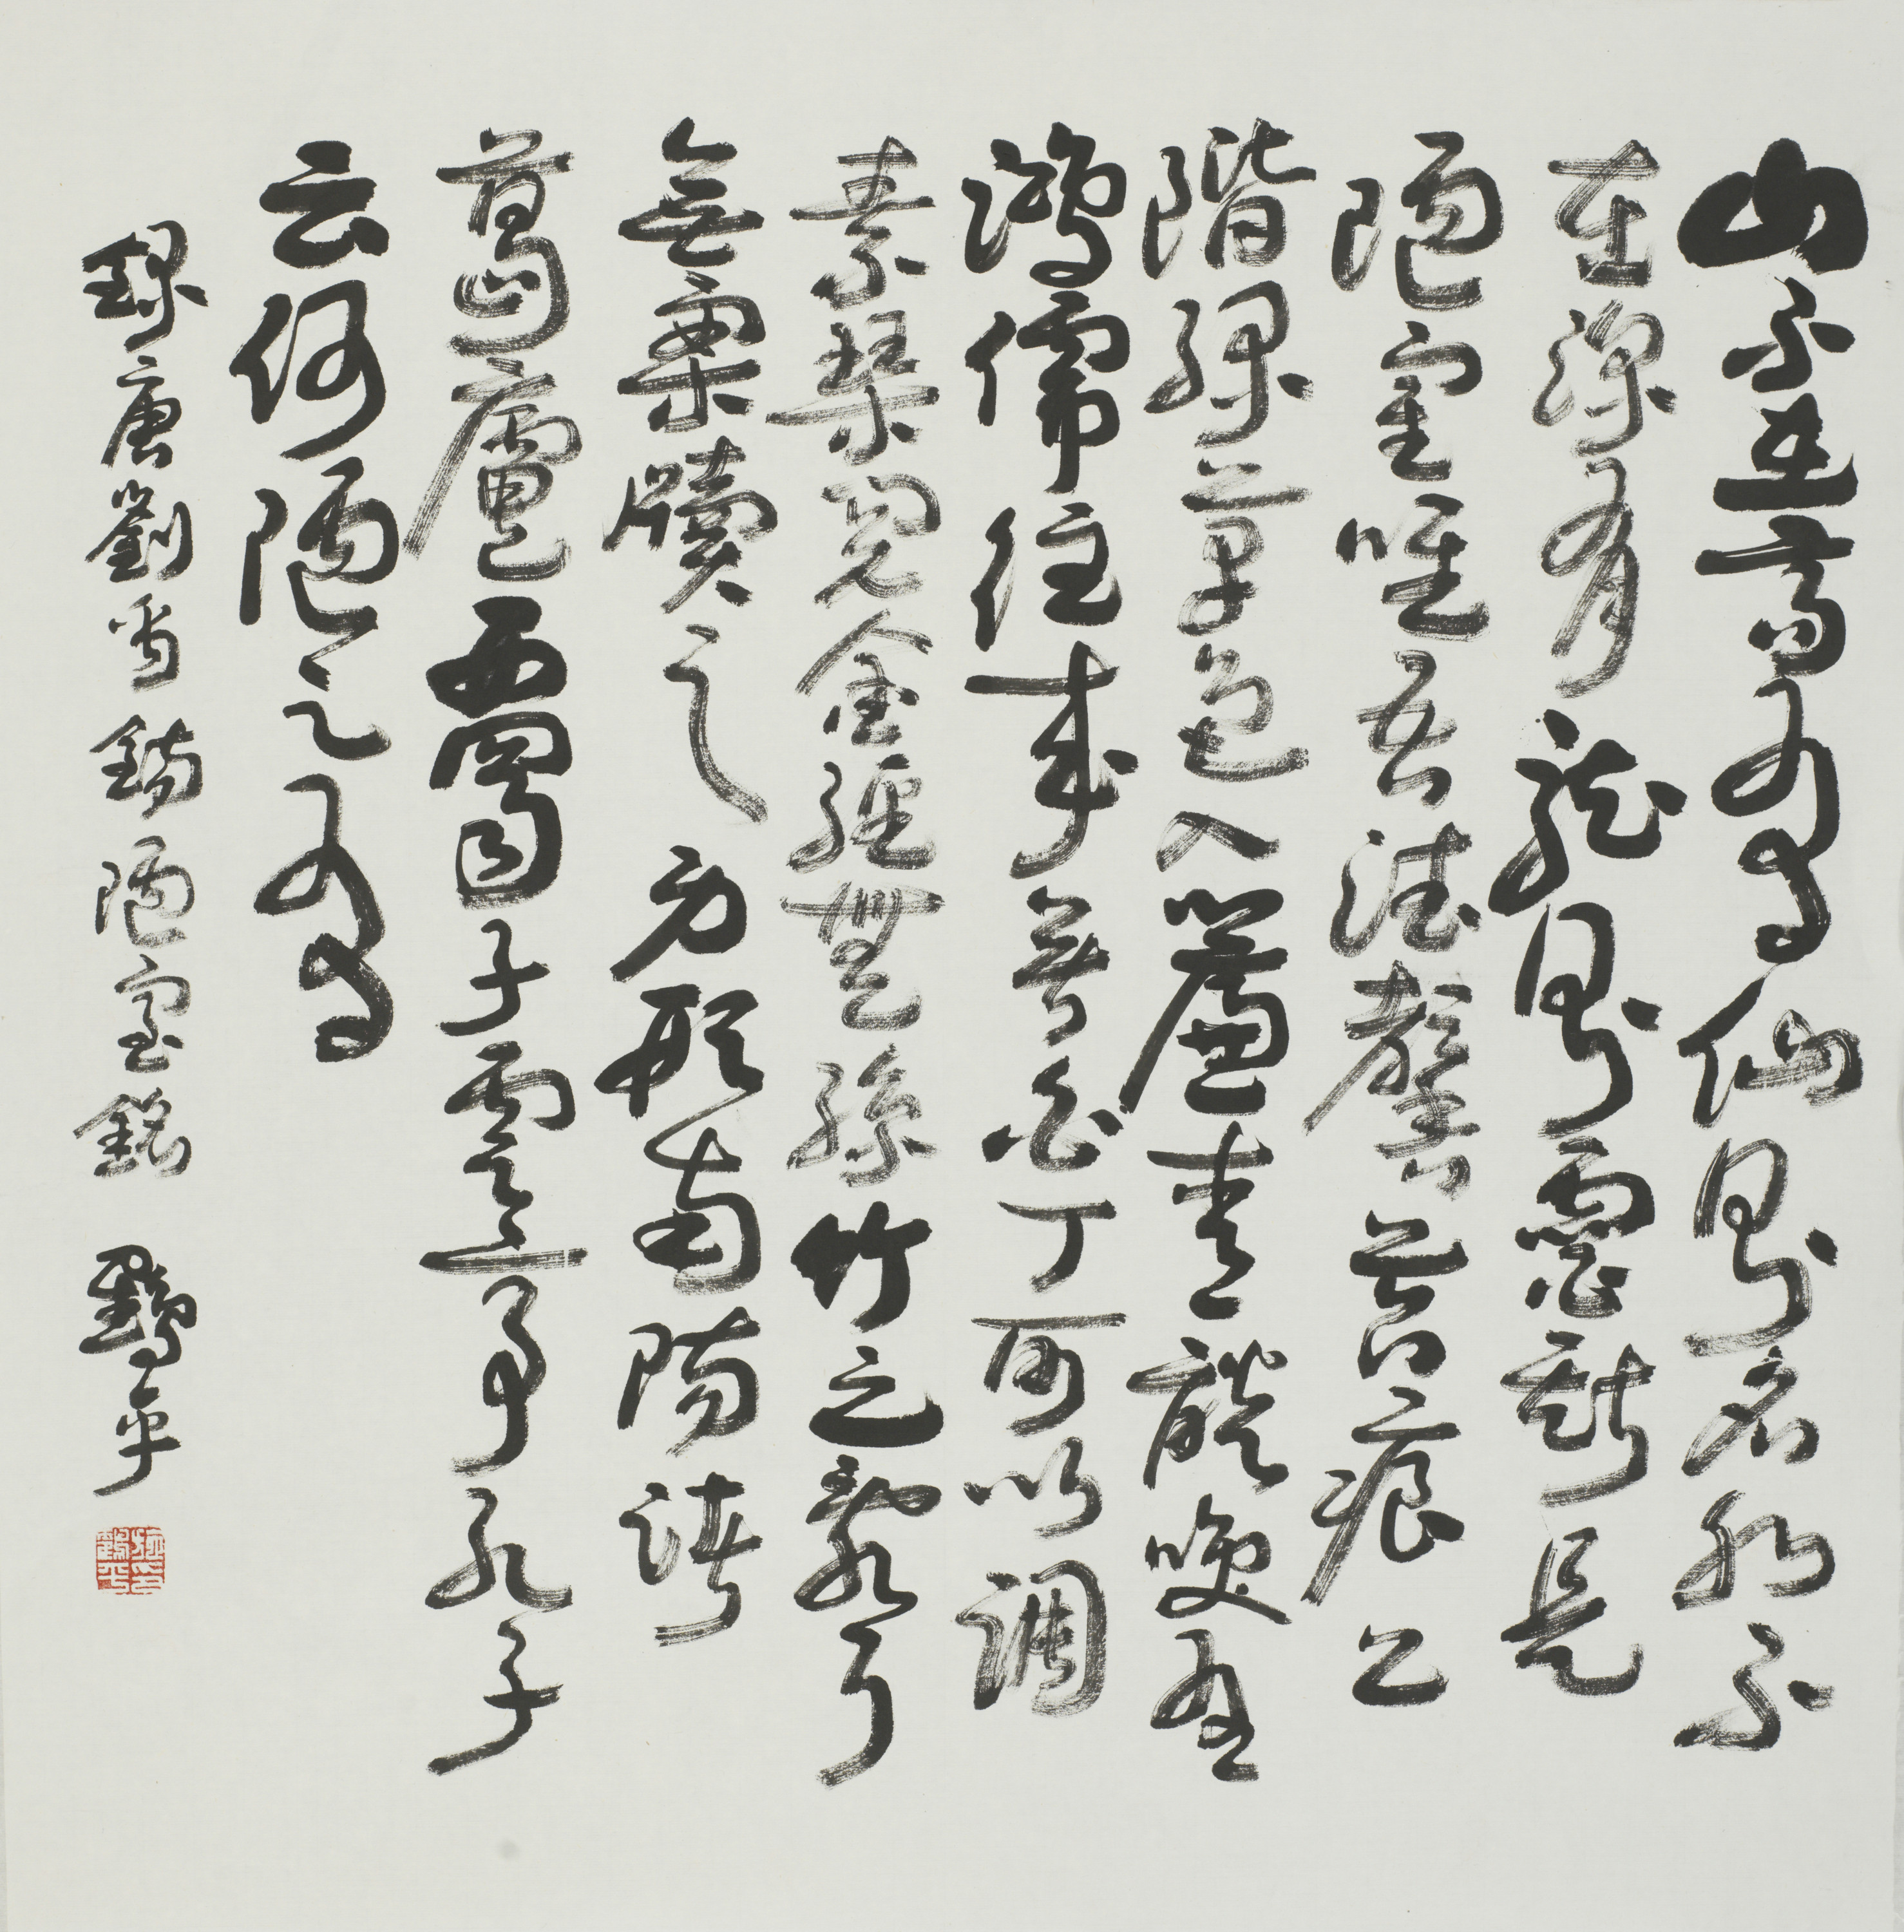 山不在高有仙則名水不
在深有龍則靈斯是
陋室唯吾德馨苔痕上
階綠草色入簾青談咲有
鴻儒往來無白丁可以調
素琴閱金經無絲竹之亂耳
無案牘之勞形南陽諸
葛廬西蜀子雲亭孔子
云何陋之有
錄唐劉禹錫陋室銘 鶴平